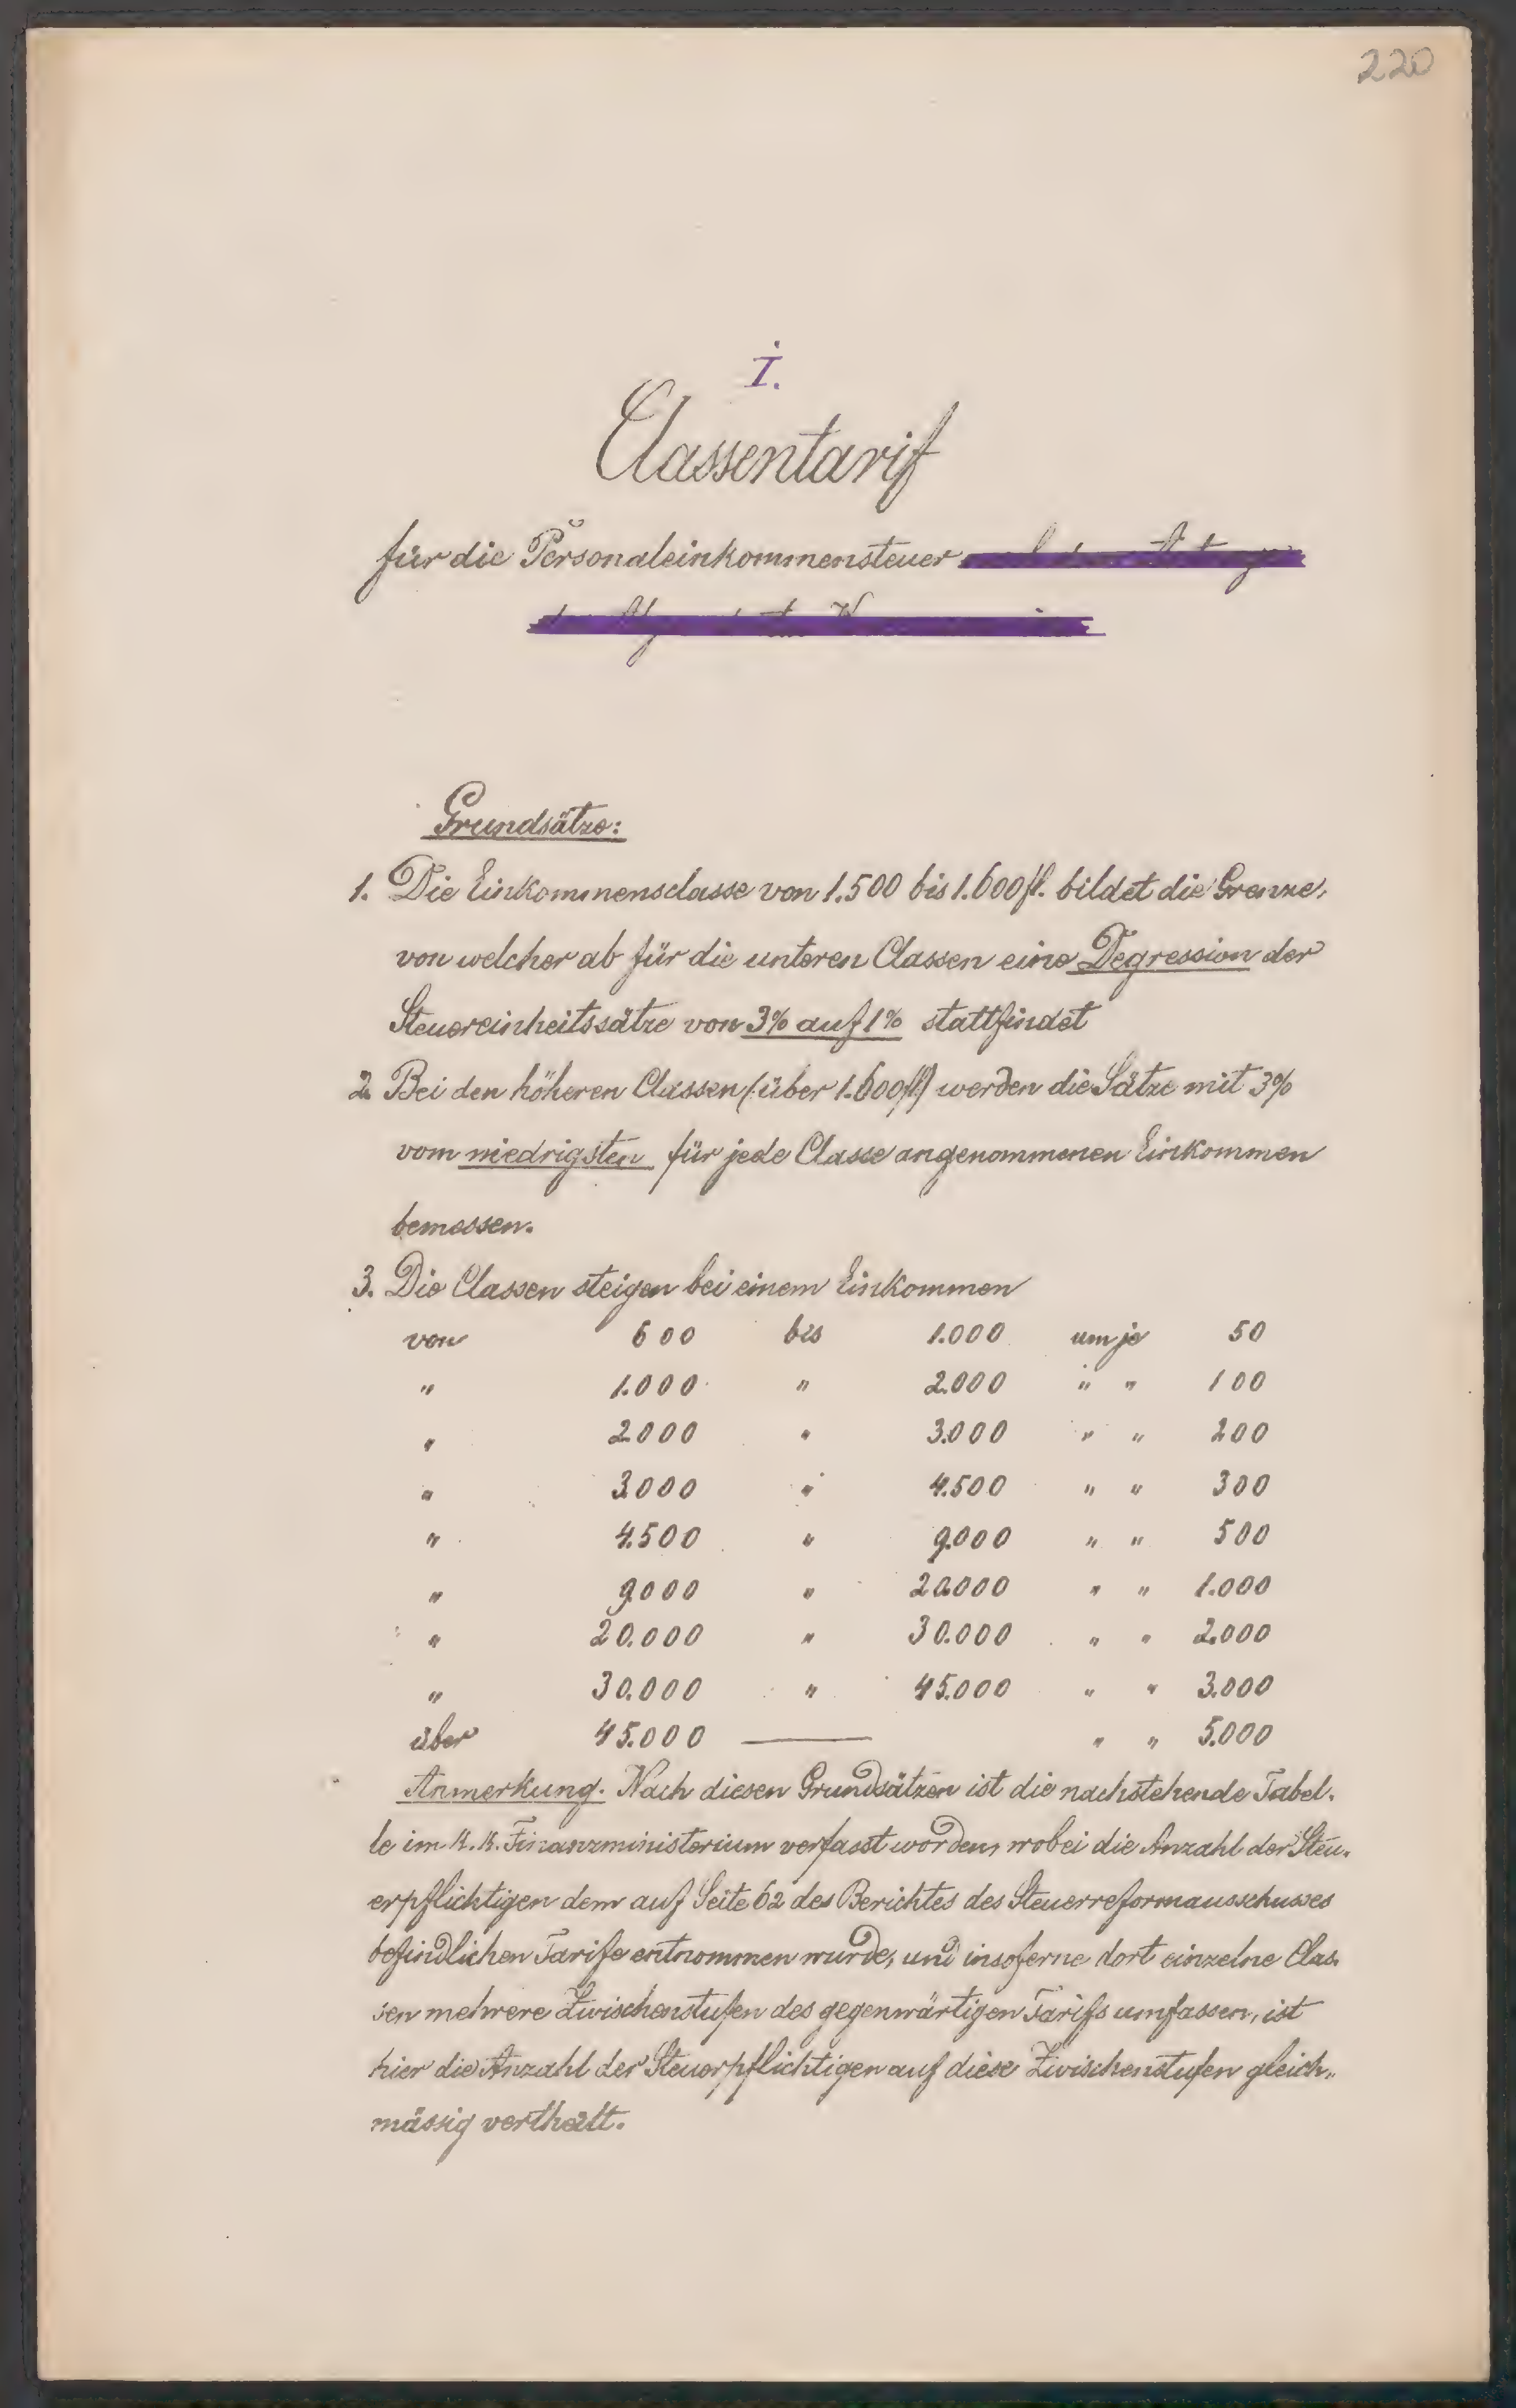 220
I.
Classentarif
für die Personaleinkommensteuer
Grundsätze:
1. Die Einkommensclasse von 1.500 bis 1.600 fl. bildet die Grenze,
von welcher ab für die unteren Classen eine Degression der
Steuereinheitssätze von 3% auf 1% stattfindet
2. Bei den höheren Classen (über 1.600 fl) werden die Sätze mit 3%
vom niedrigsten für jede Classe angenommenen Einkommen
bemessen.
3. Die Classen steigen bei einem Einkommen
von 600 bis 1.000 um je 50
" 1.000 " 2.000 " " 100
" 2.000 " 3.000 " " 200
" 3.000 " 4.500 " " 300
" 4.500 " 9.000 " " 500
" 9.000 " 20.000 " " 1.000
" 20.000 " 30.000 " " 2.000
" 30.000 " 45.000 " " 3.000
über 45.000 — " " 5.000
Anmerkung. Nach diesen Grundsätzen ist die nachstehende Tabel-
le im K. K. Finanzministerium verfasst worden, wobei die Anzahl der Steu-
erpflichtigen dem auf Seite 62 des Berichtes des Steuerreformausschusses
befindlichen Tarife entnommen wurde, und insoferne dort einzelne Clas-
sen mehrere Zwischenstufen des gegenwärtigen Tarifs umfassen, ist
hier die Anzahl der Steuerpflichtigen auf diese Zwischenstufen gleich-
mässig vertheilt.